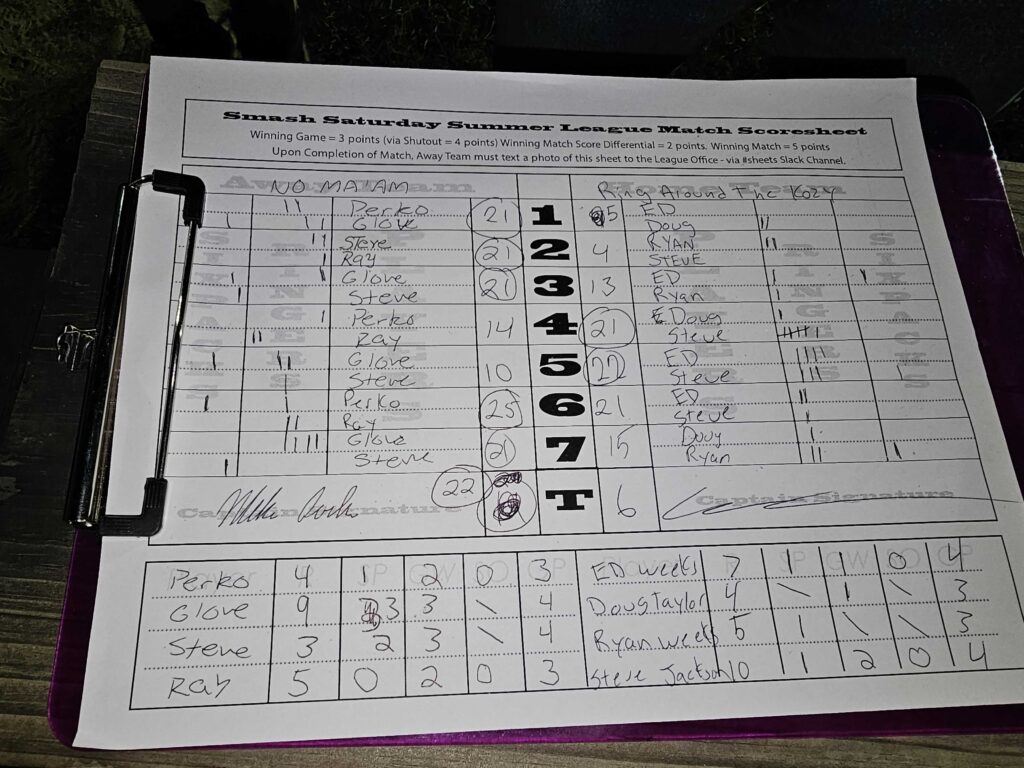 Smash Saturday Summer League Match Scoresheet
Winning Game = 3 points (via Shutout = 4 points) Winning Match Score Differential = 2 points. Winning Match = 5 points
Upon Completion of Match, Away Team must text a photo of this sheet to the League Office - via #sheets Slack Channel.
NO MA'AM Ring Around The Kozy
Perko 21 1 5 ED
Glove Doug
Steve 21 2 4 RYAN
Ray STEVE
Glove 21 3 13 ED
Steve Ryan
Perko 14 4 21 Doug
Ray Steve
Glove 10 5 22 ED
Steve Steve
Perko 25 6 21 ED
Ray Steve
Glove 21 7 15 Doug
Steve Ryan
22 T 6
Captain Signature Captain Signature
Perko 4 1 2 0 3 ED weeks 7 1 1 0 4
Glove 9 3 3 \ 4 Doug Taylor 4 \ 1 \ 3
Steve 3 2 3 \ 4 Ryan weeks 5 1 \ \ 3
Ray 5 0 2 0 3 Steve Jackson 10 1 2 0 4